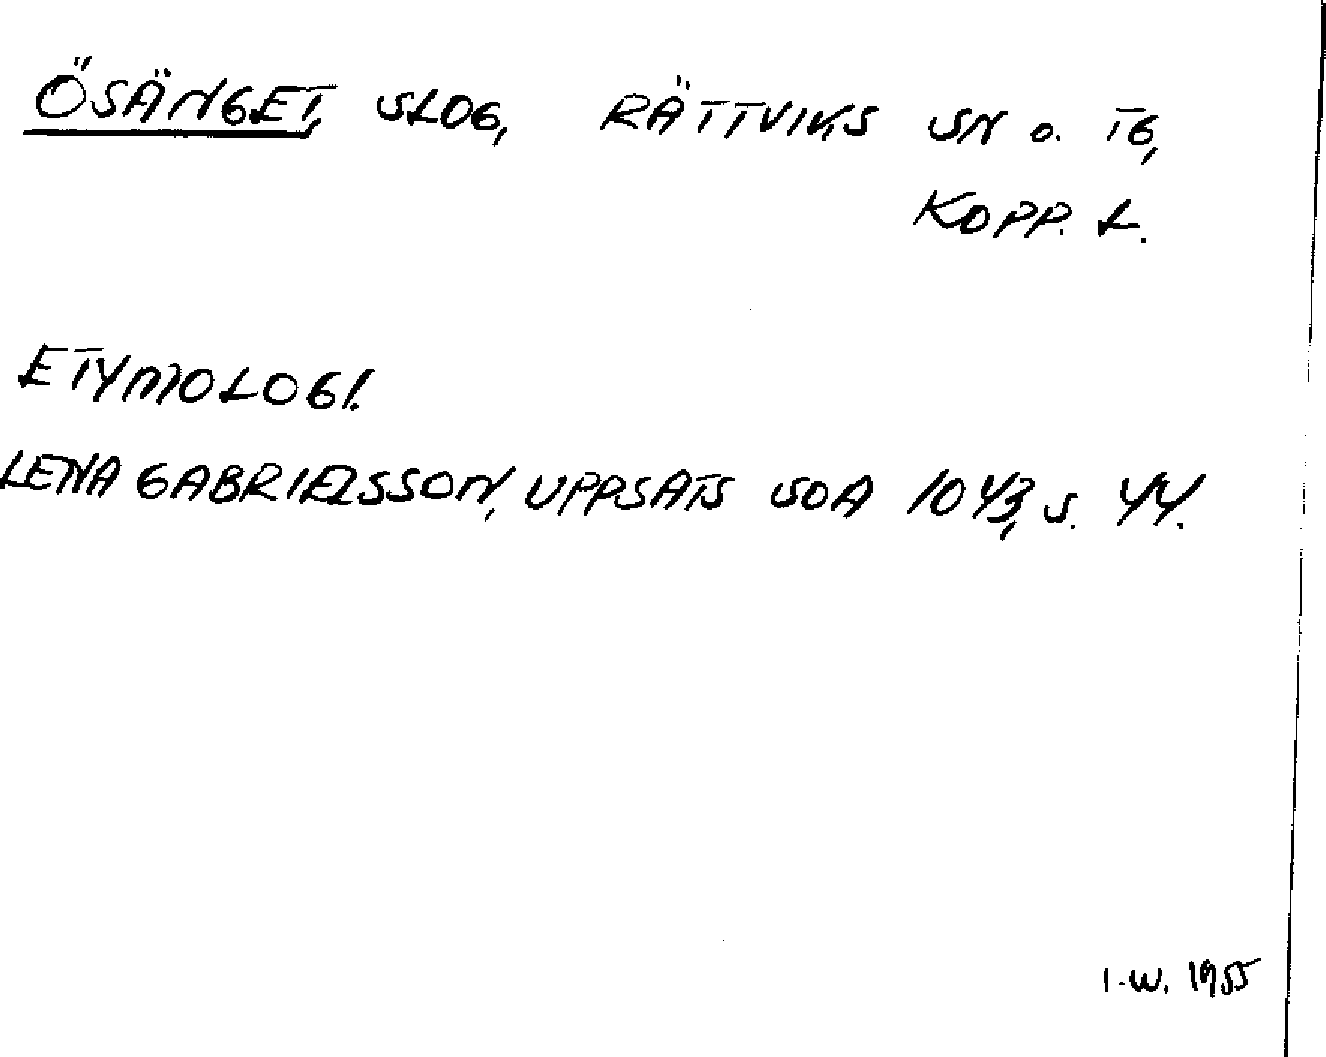 ÖSÄNGET, SLOG, RÄTTVIKS SN o. TG,
KOPP. L.
ETYMOLOGI.
LENA GABRIELSSON, UPPSATS SOA 1043, S. 44.
I.W. 1955